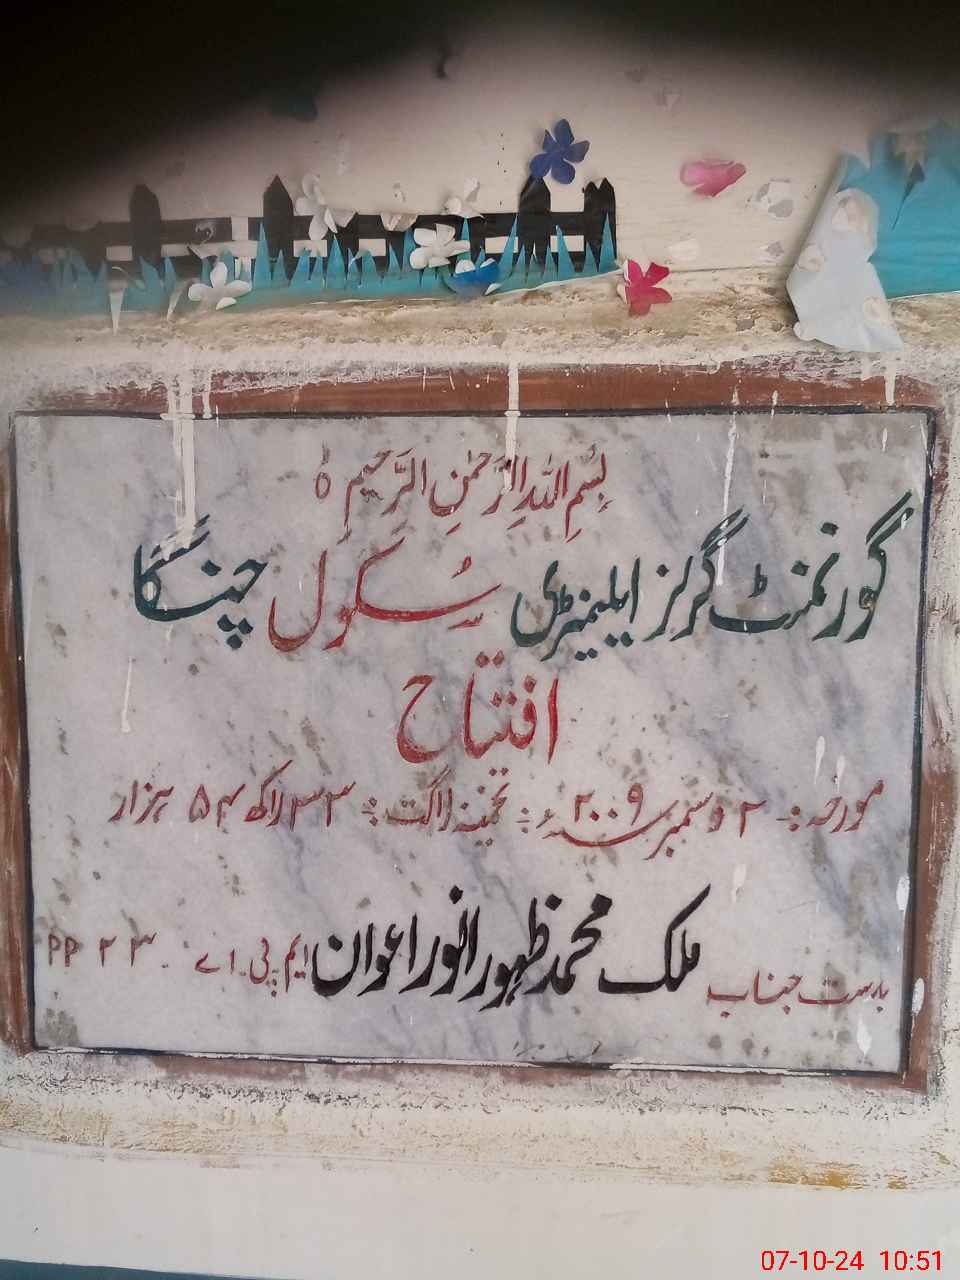 بِسْمِ اللهِ الرَّحْمٰنِ الرَّحِيمِ ه
گورنمنٹ گرلز ایلیمنٹری سکول چنگا
افتتاح
مورخہ:- ۲ دسمبر سنہ ۲۰۰۹ء :- تخمینہ لاگت :- ۳۳ لاکھ ۵۴ ہزار
بدست جناب ملک محمد ظہور انور اعوان ایم پی۔اے ۔ PP ۲۳
07-10-24 10:51